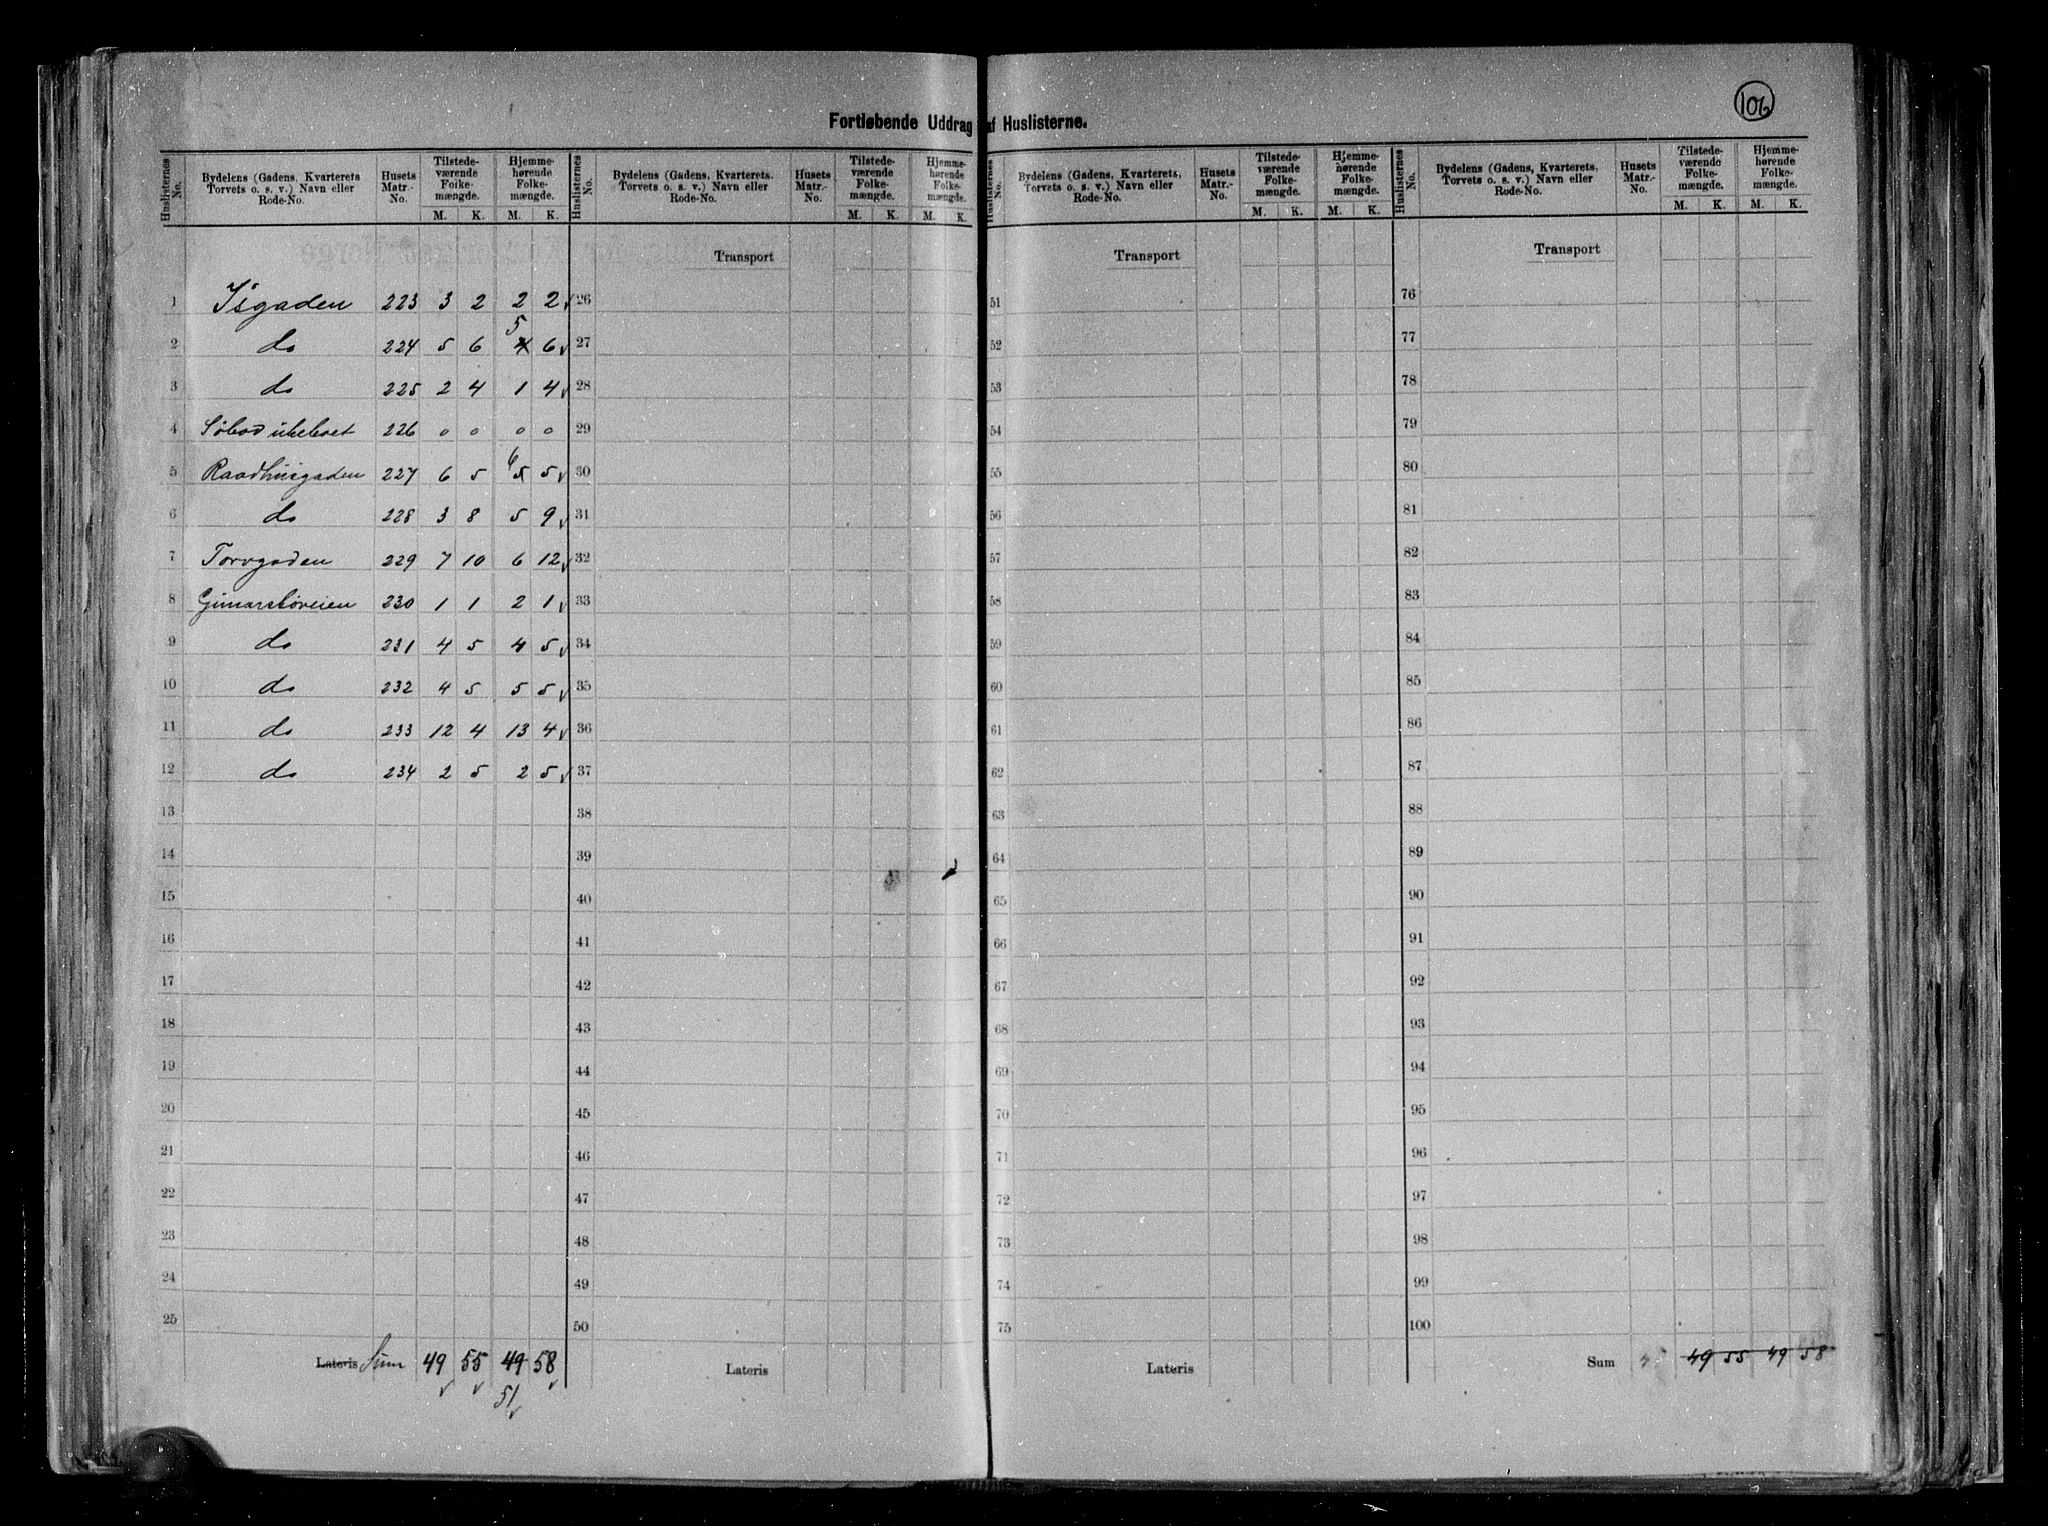 106
Fortløbende Uddrag af Huslisterne.
Huslisternes No. | Bydelens (Gadens, Kvarterets Torvets o. s. v.) Navn eller Rode-No. | Husets Matr.-No. | Tilstedeværende Folkemængde. M. K. | Hjemmehørende Folkemængde. M. K.
Huslisternes No. | Bydelens (Gadens, Kvarterets, Torvets o. s. v.) Navn eller Rode-No. | Husets Matr.-No. | Tilstedeværende Folkemængde. M. K. | Hjemmehørende Folkemængde. M. K.
Huslisternes No. | Bydelens (Gadens, Kvarterets, Torvets o. s. v.) Navn eller Rode-No. | Husets Matr.-No. | Tilstedeværende Folkemængde. M. K. | Hjemmehørende Folkemængde. M. K.
Huslisternes No. | Bydelens (Gadens, Kvarterets, Torvets o. s. v.) Navn eller Rode-No. | Husets Matr.-No. | Tilstedeværende Folkemængde. M. K. | Hjemmehørende Folkemængde. M. K.
Transport Transport Transport
1 Isgaden 223 3 2 2 2 26 51 76
2 do 224 5 6 5 6 27 52 77
3 do 225 2 4 1 4 28 53 78
4 Søbod ubeboet 226 0 0 0 0 29 54 79
5 Raadhusgaden 227 6 5 6 5 5 30 55 80
6 do 228 3 8 5 9 31 56 81
7 Torvgaden 229 7 10 6 12 32 57 82
8 Gimarsbøveien 230 1 1 2 1 33 58 83
9 do 231 4 5 4 5 34 59 84
10 do 232 4 5 5 5 35 60 85
11 do 233 12 4 13 4 36 61 86
12 do 234 2 5 2 5 37 62 87
13 38 63 88
14 39 64 89
15 40 65 90
16 41 66 91
17 42 67 92
18 43 68 93
19 44 69 94
20 45 70 95
21 46 71 96
22 47 72 97
23 48 73 98
24 49 74 99
25 50 75 100
Lateris Sum 49 55 49 58 Lateris Lateris Sum 49 55 49 58
51